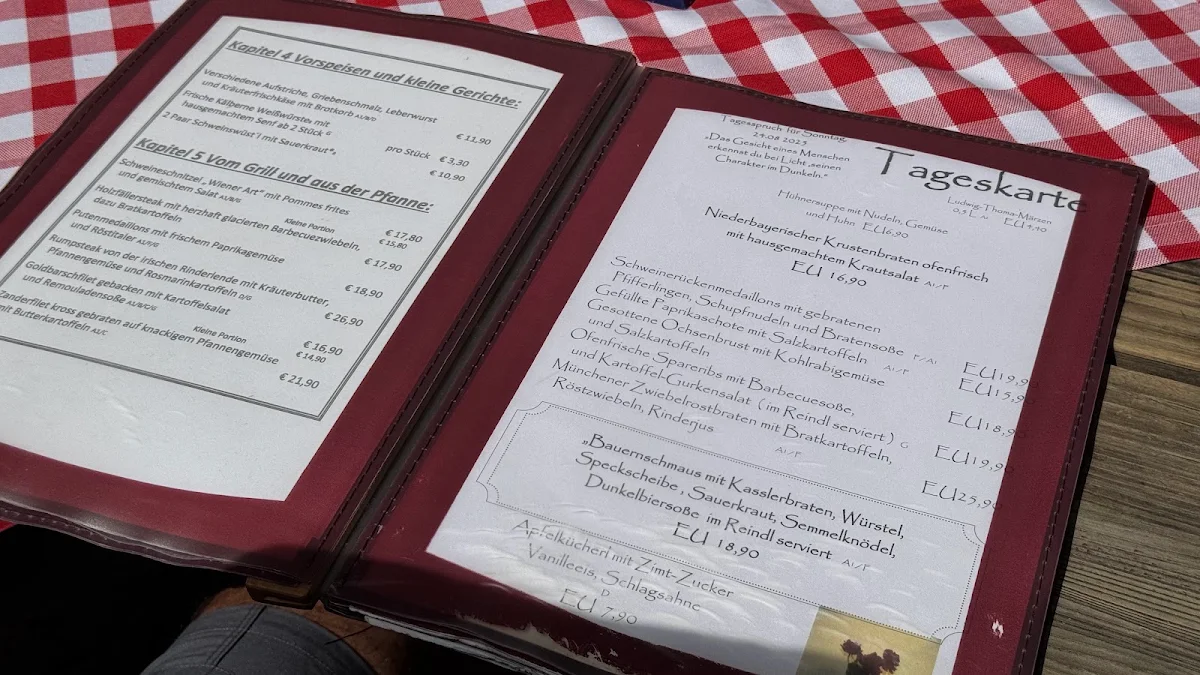 Kapitel 4 Vorspeisen und kleine Gerichte:
Verschiedene Aufstriche, Griebenschmalz, Leberwurst
und Kräuterfrischkäse mit Brotkorb A1/B/D
€ 11,90
Frische Kälberne Weißwürste, mit
hausgemachtem Senf ab 2 Stück G
pro Stück € 3,30
2 Paar Schweinswüst´l mit Sauerkraut*,
€ 10,90
Kapitel 5 Vom Grill und aus der Pfanne:
Schweineschnitzel „Wiener Art" mit Pommes frites
und gemischtem Salat A1/B/G
€ 17,80
Kleine Portion € 15,80
Holzfällersteak mit herzhaft glacierten Barbecuezwiebeln,
dazu Bratkartoffeln
€ 17,90
Putenmedaillons mit frischem Paprikagemüse
und Röstitaler A1/F/G
€ 18,90
Rumpsteak von der irischen Rinderlende mit Kräuterbutter,
Pfannengemüse und Rosmarinkartoffeln D/G
€ 26,90
Goldbarschfilet gebacken mit Kartoffelsalat
und Remouladensoße A1/B/C/G
€ 16,90
Kleine Portion € 14,90
Zanderfilet kross gebraten auf knackigem Pfannengemüse
mit Butterkartoffeln A1/C
€ 21,90
Tagesspruch für Sonntag,
24.08 2025
„Das Gesicht eines Menschen
erkennst du bei Licht ,seinen
Charakter im Dunkeln."
Tageskarte
Ludwig-Thoma-Märzen
0,5 L A1 EU 4,40
Hühnersuppe mit Nudeln, Gemüse
und Huhn EU6,90
Niederbayerischer Krustenbraten ofenfrisch
mit hausgemachtem Krautsalat A1/F
EU 16,90
Schweinerückenmedaillons mit gebratenen
Pfifferlingen, Schupfnudeln und Bratensoße F/A1
EU19,9
Gefüllte Paprikaschote mit Salzkartoffeln A1/F
EU15,9
Gesottene Ochsenbrust mit Kohlrabigemüse
und Salzkartoffeln
EU18,9
Ofenfrische Spareribs mit Barbecuesoße,
und Kartoffel-Gurkensalat ( im Reindl serviert ) G
EU19,9
Münchener Zwiebelrostbraten mit Bratkartoffeln,
Röstzwiebeln, Rinderjus A1/F
EU25,9
„Bauernschmaus mit Kasslerbraten, Würstel,
Speckscheibe , Sauerkraut, Semmelknödel,
Dunkelbiersoße im Reindl serviert A1/F
EU 18,90
Apfelkücherl mit Zimt-Zucker
Vanilleeis, Schlagsahne
D
EU 7,90